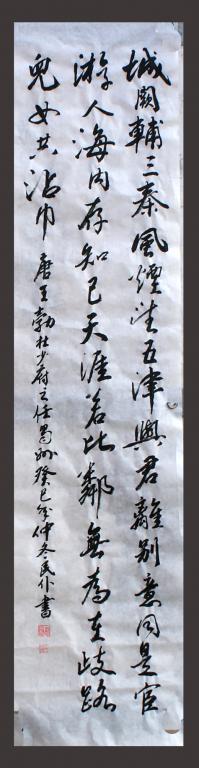 城闕輔三秦風煙望五津與君離別意同是宦
游人海内存知己天涯若比鄰無為在歧路
兒女共沾巾
唐王勃杜少府之任蜀州癸巳年仲冬民仆書